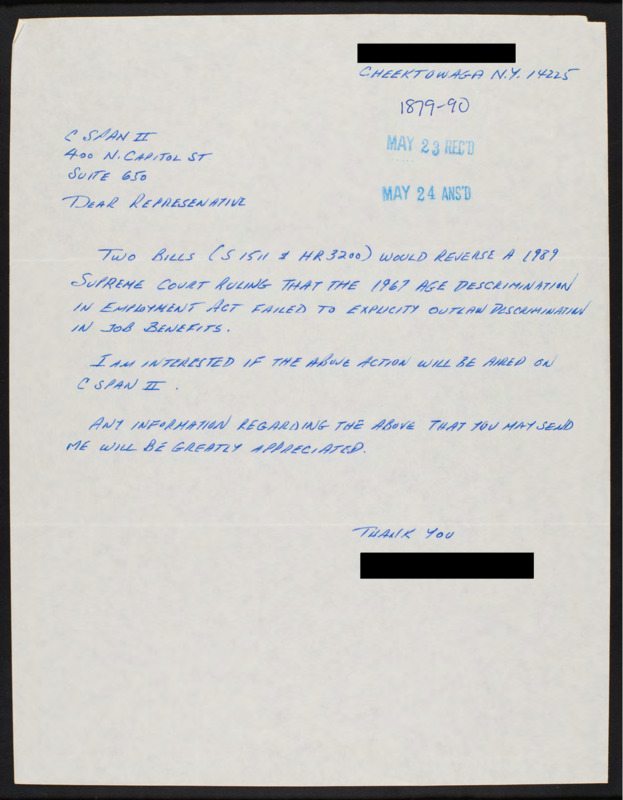 CHEEKTOWAGA N.Y. 14225
1879-90
C SPAN II
400 N. CAPITOL ST
SUITE 650
MAY 23 REC'D
MAY 24 ANS'D
DEAR REPRESENATIVE
TWO BILLS (S 1511 & HR3200) WOULD REVERSE A 1989
SUPREME COURT RULING THAT THE 1967 AGE DESCRIMINATION
IN EMPLOYMENT ACT FAILED TO EXPLICITY OUTLAW DESCRIMINATION
IN JOB BENEFITS.
I AM INTERESTED IF THE ABOVE ACTION WILL BE AIRED ON
C SPAN II .
ANY INFORMATION REGARDING THE ABOVE THAT YOU MAY SEND
ME WILL BE GREATLY APPRECIATED.
THANK YOU